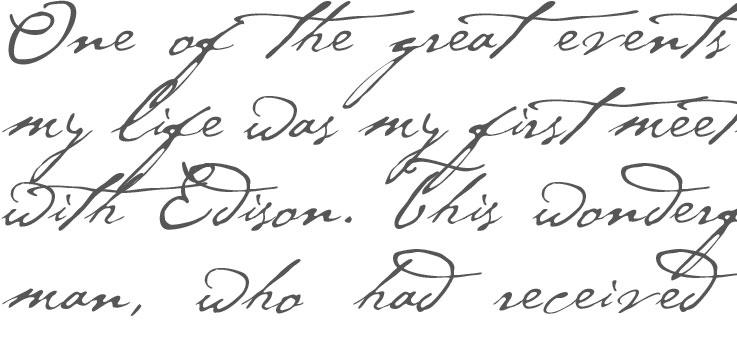 One of the great events
my life was my first meet
with Edison. This wonderf
man, who had received